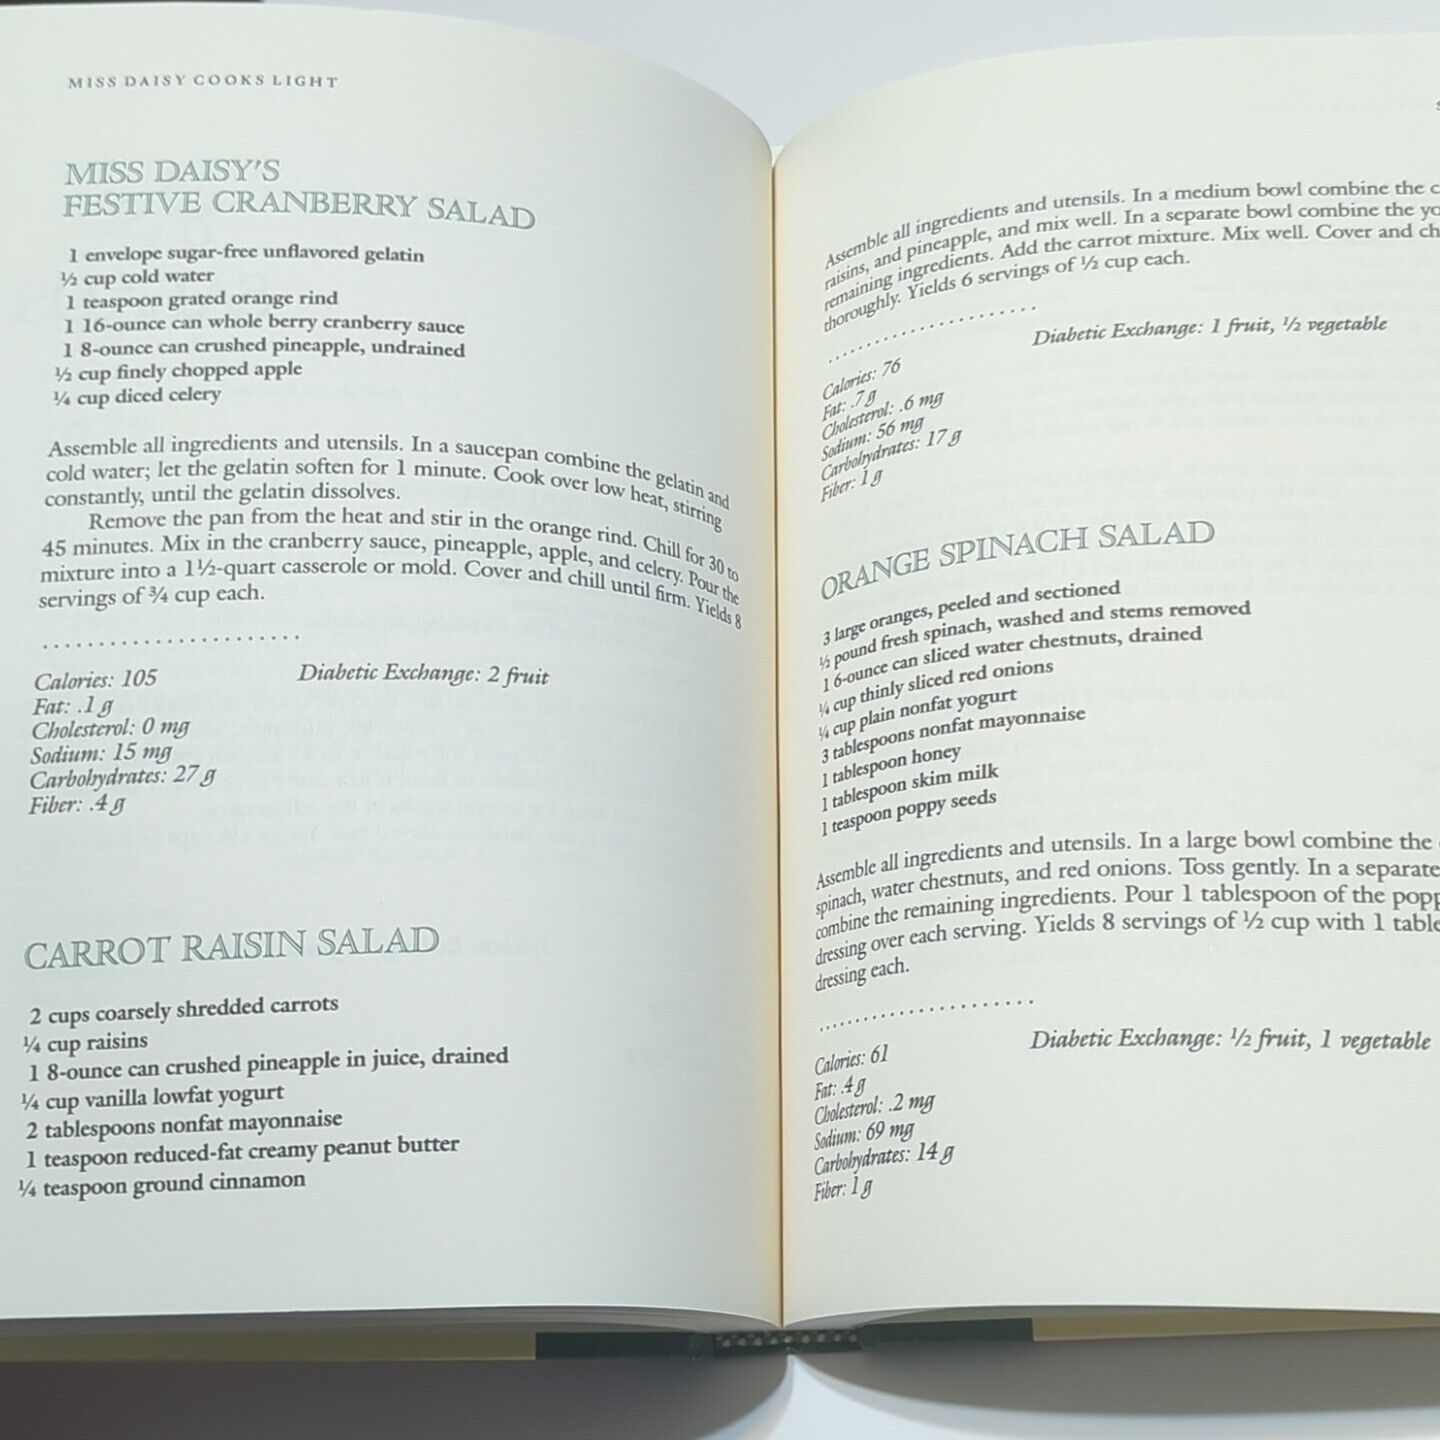 MISS DAISY COOKS LIGHT
MISS DAISY'S
FESTIVE CRANBERRY SALAD
1 envelope sugar-free unflavored gelatin
½ cup cold water
1 teaspoon grated orange rind
1 16-ounce can whole berry cranberry sauce
1 8-ounce can crushed pineapple, undrained
½ cup finely chopped apple
¼ cup diced celery
Assemble all ingredients and utensils. In a saucepan combine the gelatin and
cold water; let the gelatin soften for 1 minute. Cook over low heat, stirring
constantly, until the gelatin dissolves.
Remove the pan from the heat and stir in the orange rind. Chill for 30 to
45 minutes. Mix in the cranberry sauce, pineapple, apple, and celery. Pour the
mixture into a 1½-quart casserole or mold. Cover and chill until firm. Yields 8
servings of ¾ cup each.
Calories: 105 Diabetic Exchange: 2 fruit
Fat: .1 g
Cholesterol: 0 mg
Sodium: 15 mg
Carbohydrates: 27 g
Fiber: .4 g
CARROT RAISIN SALAD
2 cups coarsely shredded carrots
¼ cup raisins
1 8-ounce can crushed pineapple in juice, drained
¼ cup vanilla lowfat yogurt
2 tablespoons nonfat mayonnaise
1 teaspoon reduced-fat creamy peanut butter
¼ teaspoon ground cinnamon
Assemble all ingredients and utensils. In a medium bowl combine the
raisins, and pineapple, and mix well. In a separate bowl combine the
remaining ingredients. Add the carrot mixture. Mix well. Cover and
thoroughly. Yields 6 servings of ½ cup each.
Diabetic Exchange: 1 fruit, ½ vegetable
Calories: 76
Fat: .7 g
Cholesterol: .6 mg
Sodium: 56 mg
Carbohydrates: 17 g
Fiber: 1 g
ORANGE SPINACH SALAD
3 large oranges, peeled and sectioned
½ pound fresh spinach, washed and stems removed
1 6-ounce can sliced water chestnuts, drained
¼ cup thinly sliced red onions
¼ cup plain nonfat yogurt
3 tablespoons nonfat mayonnaise
1 tablespoon honey
1 tablespoon skim milk
1 teaspoon poppy seeds
Assemble all ingredients and utensils. In a large bowl combine the
spinach, water chestnuts, and red onions. Toss gently. In a separate
combine the remaining ingredients. Pour 1 tablespoon of the
dressing over each serving. Yields 8 servings of ½ cup with 1
dressing each.
Diabetic Exchange: ½ fruit, 1 vegetable
Calories: 61
Fat: .4 g
Cholesterol: .2 mg
Sodium: 69 mg
Carbohydrates: 14 g
Fiber: 1 g